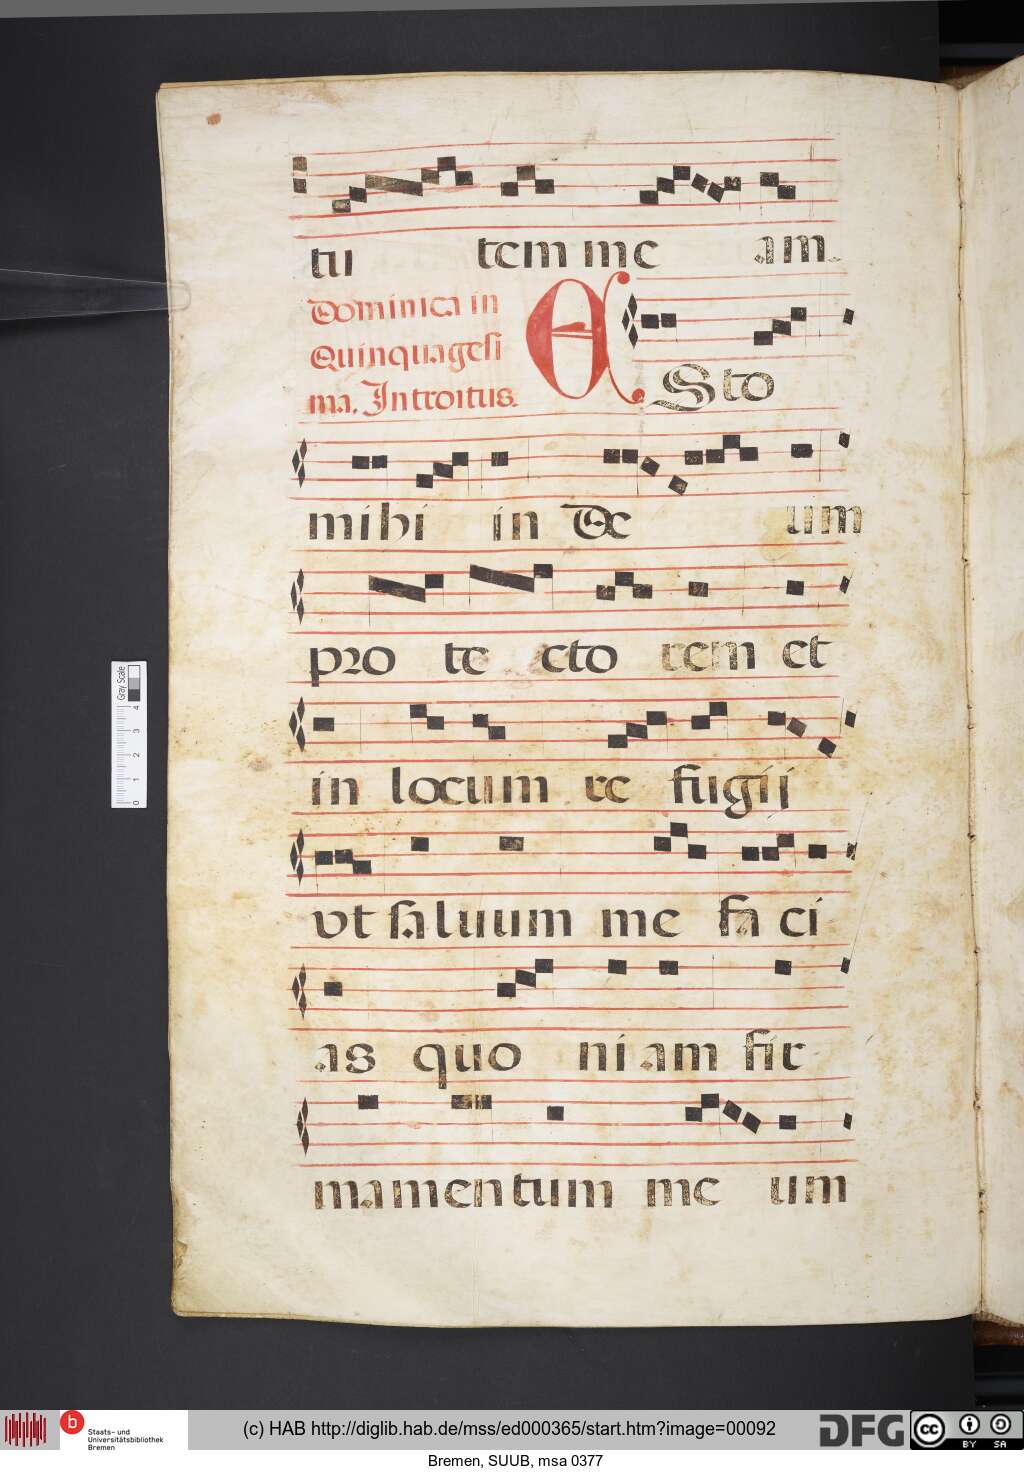 tu tem me am.
Dominica in
Quinquagesi
ma. Introitus.
ESto
mihi in De um
pro te cto rem et
in locum re fugij
vt saluum me fa ci
as quo ni am fir
mamentum me um
Gray Scale
0 1 2 3 4
b Staats- und
Universitätsbibliothek
Bremen
(c) HAB http://diglib.hab.de/mss/ed000365/start.htm?image=00092
DFG
cc BY SA
Bremen, SUUB, msa 0377